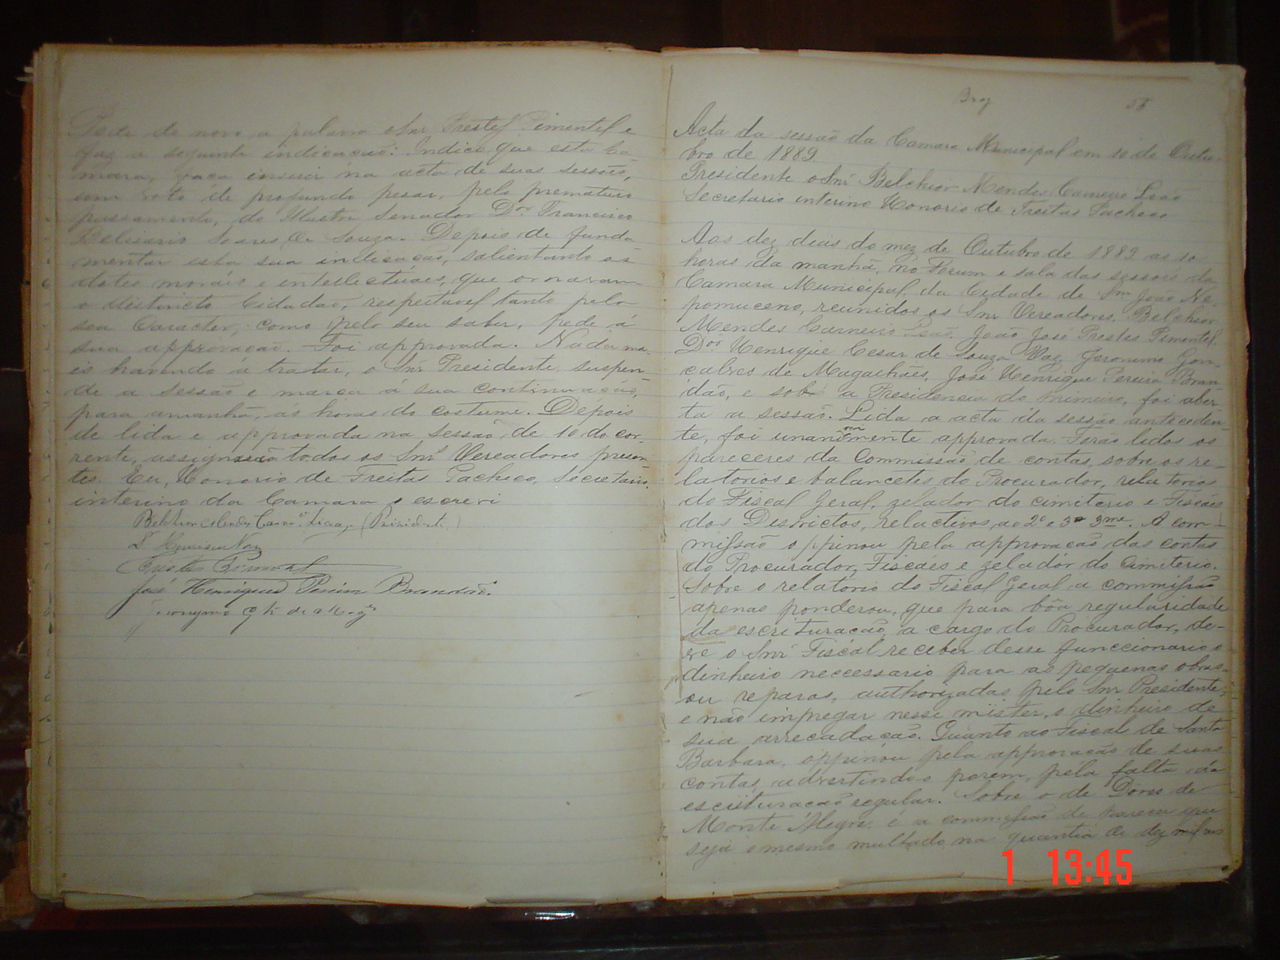 Pede de novo a palavra o Snr Prestes Pimentel e
faz a seguinte indicação: Indico que esta Ca-
mara, faça inserir na acta de suas sessões,
um voto de profundo pesar, pelo prematuro
passamento, do Illustre Senador Dor Francisco
Belisario Soares de Souza. Depois de funda-
mentar esta sua indicação, salientando os
dotes moraes e intellectuaes, que ornavam
o distincto Cidadão, respeitavel tanto pelo
seu Caracter, como pelo seu saber, pede á
sua approvação. Foi approvada. Nada ma-
is havendo á tratar, o Snr Presidente suspen-
de a sessão e marca á sua continuação,
para amanhã, as horas do costume. Depois
de lida e approvada na sessão de 10 do cor-
rente, assignarão todos os Snrs Vereadores presen-
tes. Eu, Honorio de Freitas Pacheco, Secretario
interino da Camara o escrevi
Belchior Mendes Carnro Leão, (Presidente)
Henrique Vaz
Prestes Pimentel
José Henrique Pereira Brandão.
58
Acta da sessão da Camara Municipal em 10 de Outu-
bro de 1889
Presidente o Snr Belchior Mendes Carneiro Leão
Secretario interino Honorio de Freitas Pacheco
Aos dez dias do mez de Outubro de 1889 as 10
horas da manhã, no Forum e sala das sessoẽs da
Camara Municipal da Cidade de Sm João Ne-
pomuceno, reunidos os Snr Vereadores, Belchior
Mendes Carneiro Leão, João José Prestes Pimentel,
Dor Henrique Cesar de Souza Vaz, Jeronimo Gon-
calves de Magalhães, José Henrique Pereira Bran-
dão, e sob a Presidencia do primeiro, foi aber-
ta a sessão. Lida a acta da sessão anteceden-
te, foi unanimemente approvada. Forão lidos os
pareceres da Commissão de contas, sobre os re-
latorios e balancetes do Procurador, relatorios
do Fiscal Geral, zelador do cimiterio e Fiscaes
dos Districtos, relactivos, ao 2º e 3º A com-
missão o ppinou pela approvação das contas
do Procurador, Fiscaes e zelador do Cimiterio.
Sobre o relatorio do Fiscal Geral a commissão
apenas ponderou, que para bôa regularidade
da escrituração a cargo do Procurador, de-
ve o Snr Fiscal receber desse funccionario o
dinheiro neccessario para as pequenas obras
ou reparos, authorizadas pelo Snr Presidente,
e não impregar nesse mister, o dinheiro de
sua arrecadação. Quanto ao Fiscal de Santa
Barbara, oppinou pela approvação de suas
contas, advertindo-o porem, pela falta da
escrituração regular. Sobre o de Dores do
Monte Alegre, é a commissão de parecer que
seja o mesmo multado na quantia de dez mil reis
1 13:45